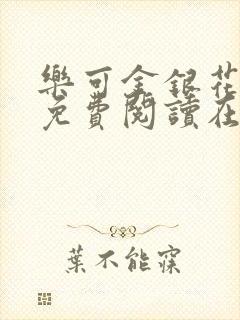 樂可金銀花
免費閱讀在
葉不能寐